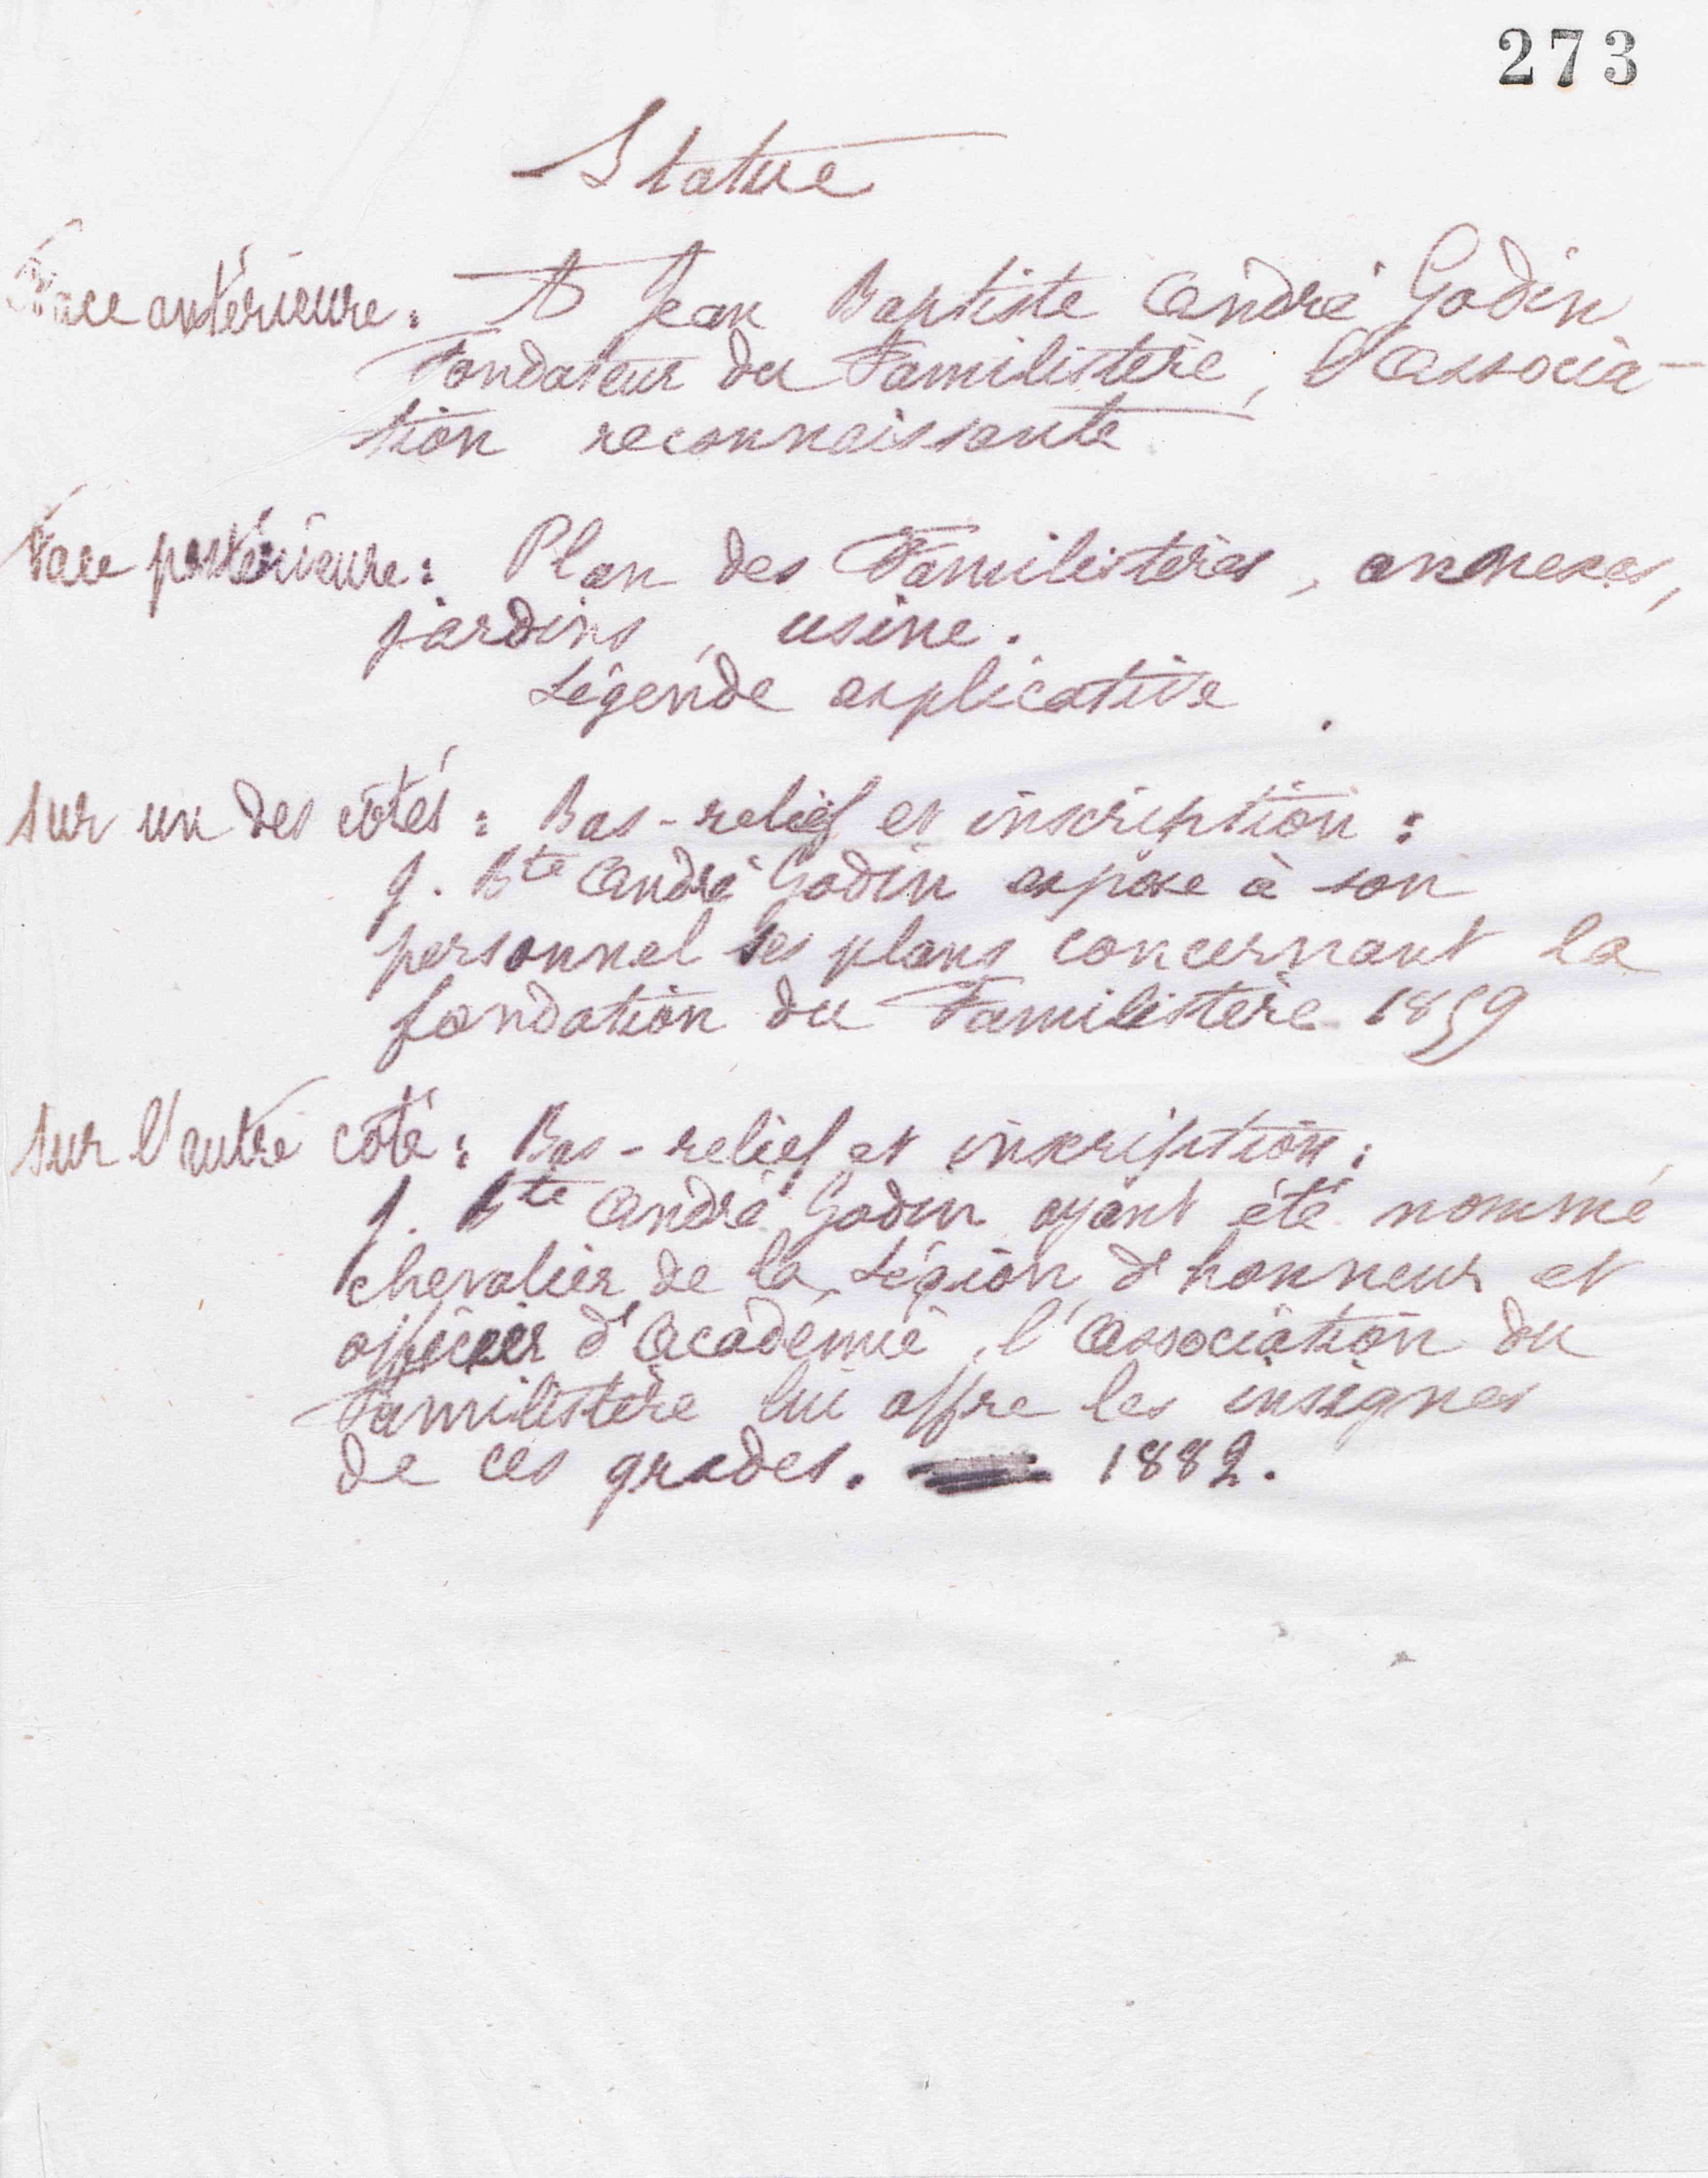 273
Statue
Face antérieure : A Jean Baptiste André Godin
Fondateur du Familistère, l'Associa-
tion reconnaissante
Face postérieure : Plan des Familistères, annexes,
jardins, usine.
Légende explicative.
Sur un des côtés : Bas-relief et inscription :
J. Bte André Godin expose à son
personnel ses plans concernant la
fondation du Familistère 1859
Sur l'autre côté : Bas-relief et inscription :
J. Bte André Godin ayant été nommé
chevalier de la Légion d'honneur et
officier d'Académie, l'Association du
Familistère lui offre les insignes
de ces grades. 1882.